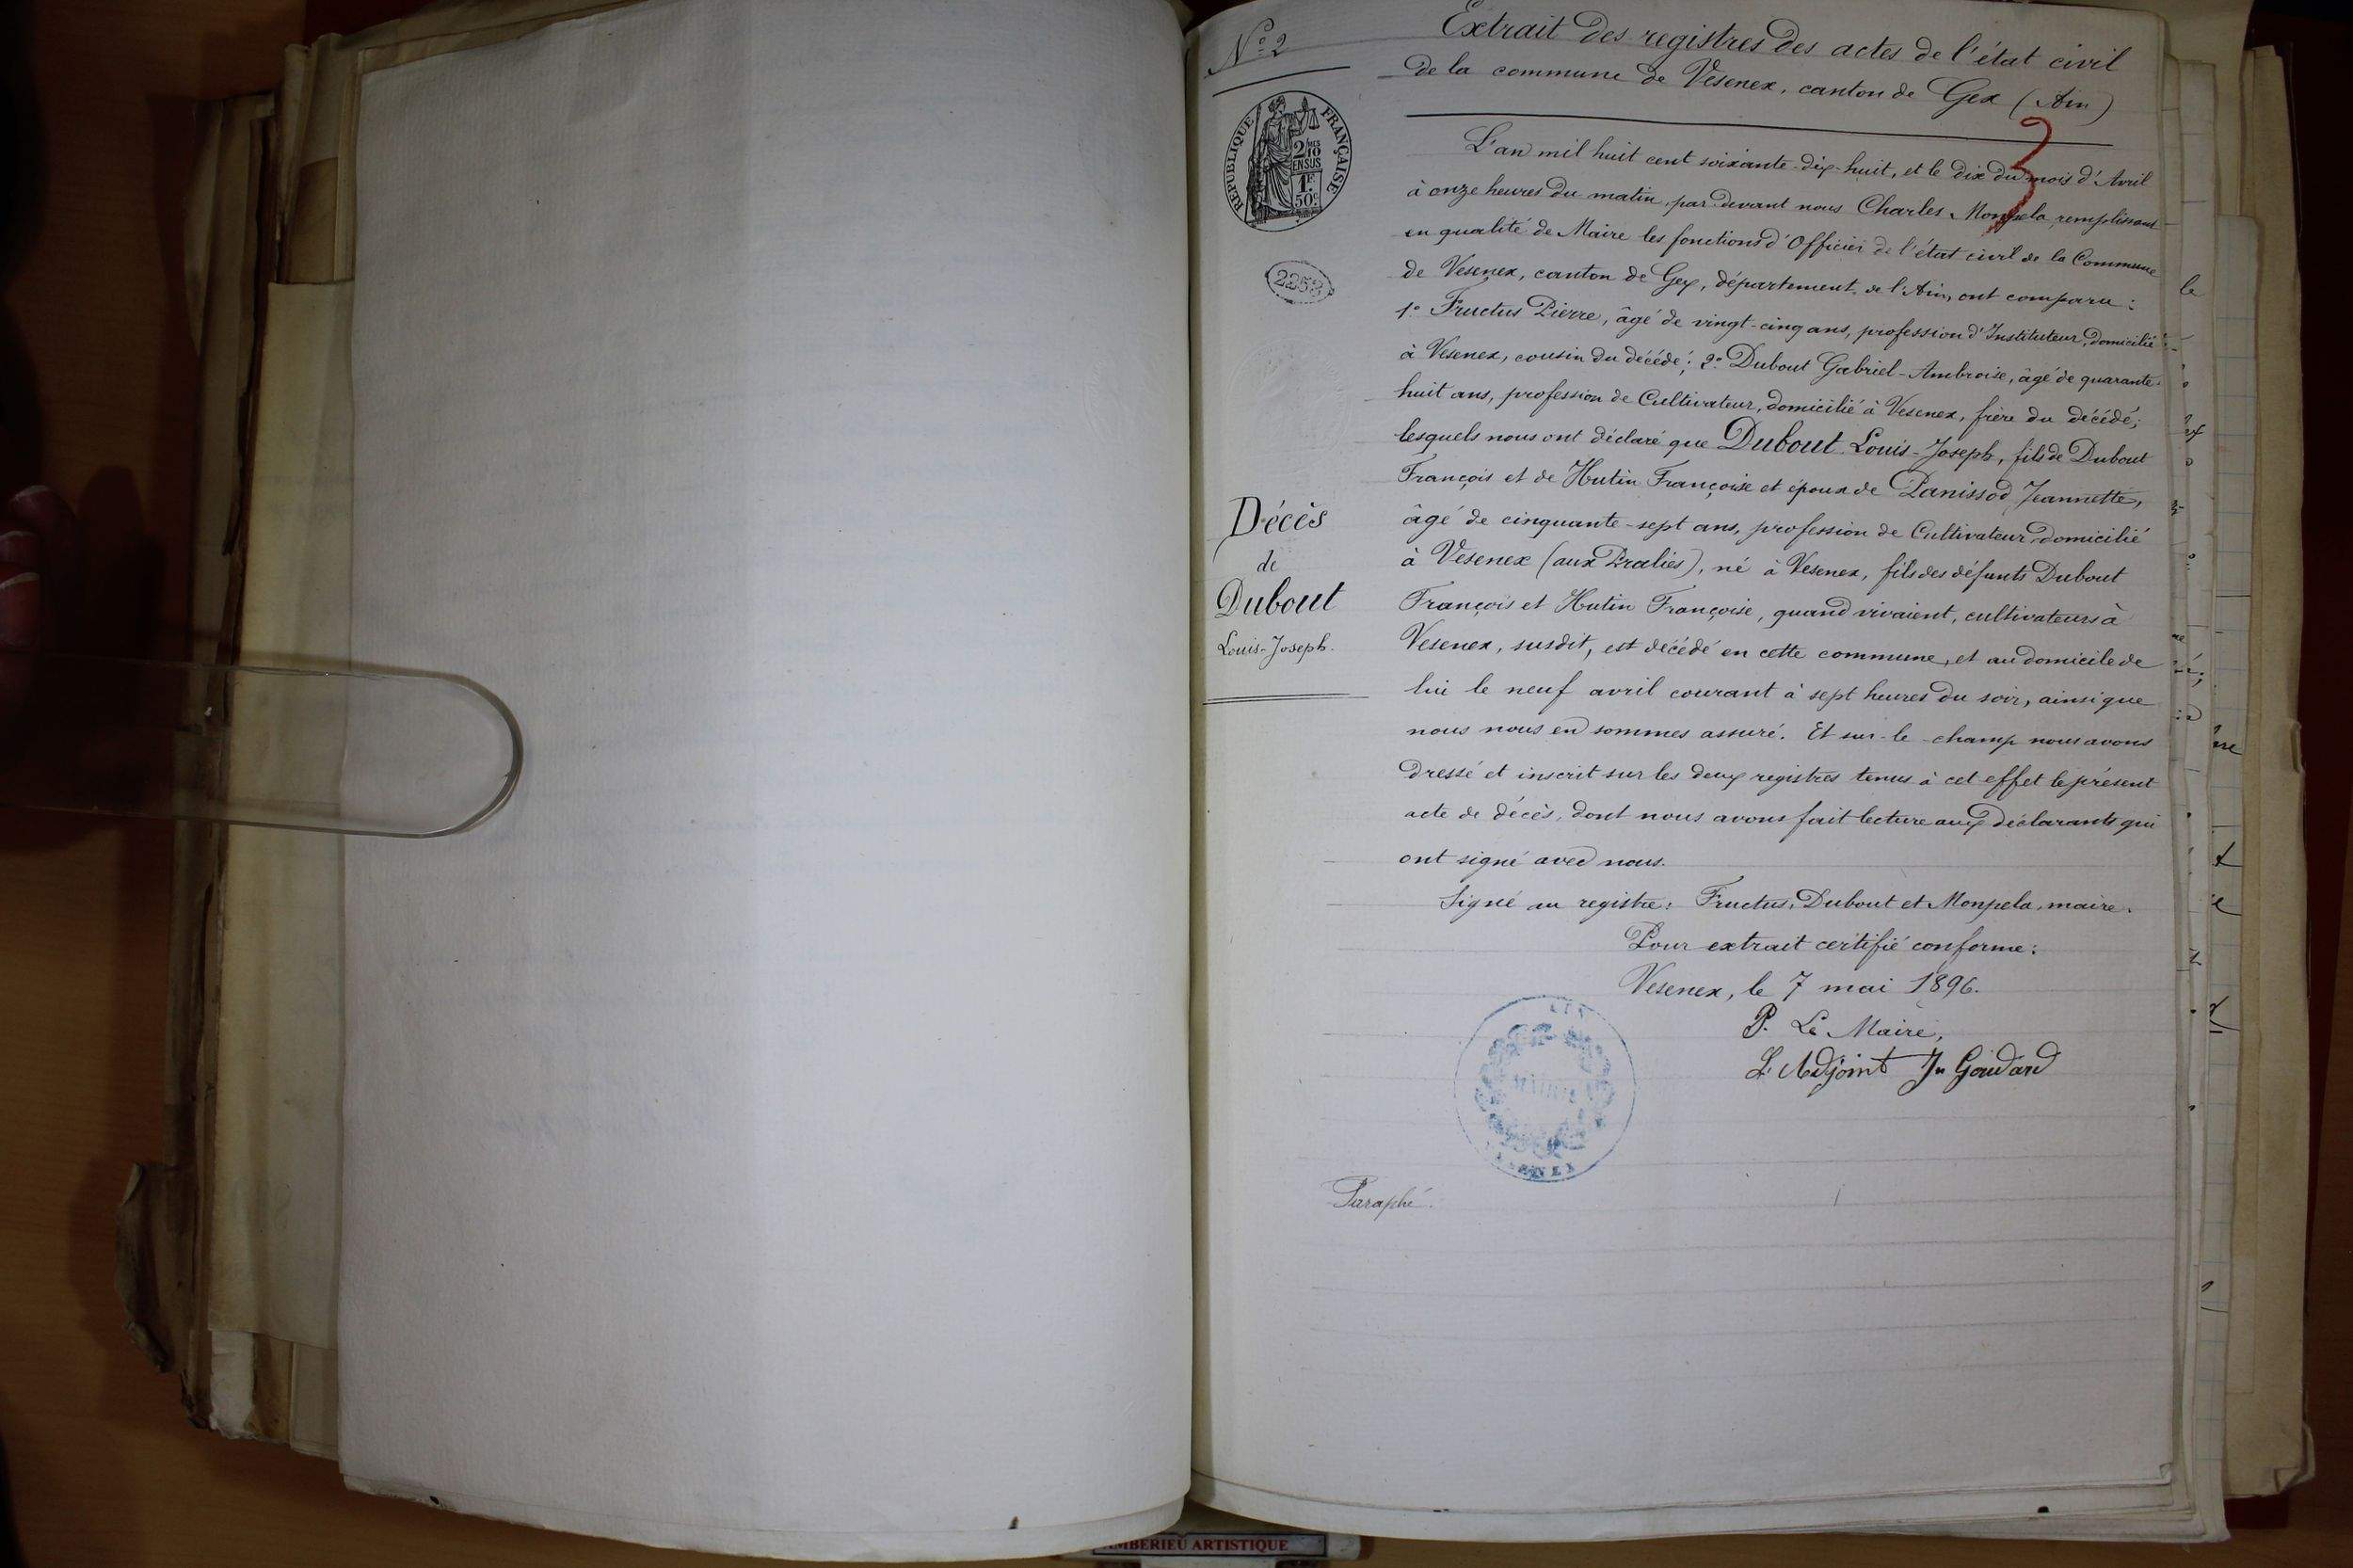 N.º 2
Extrait des registres des actes de l'état civil
de la commune de Vesenex, canton de Gex (Ain)
RÉPUBLIQUE FRANÇAISE
2/10
MES
EN SUS
1F
50c
2253
L'an mil huit cent soixante-dix-huit, et le dix du mois d'Avril
à onze heures du matin, par devant nous Charles Monpela remplissant
en qualité de Maire les fonctions d'Officier de l'état civil de la Commune
de Vesenex, canton de Gex, département de l'Ain, ont comparu :
1º Fructus Pierre, âgé de vingt-cinq ans, profession d'Instituteur, domicilié
à Vesenex, cousin du décédé; 2º Dubout Gabriel-Ambroise, âgé de quarante-
huit ans, profession de Cultivateur, domicilié à Vesenex, frère du décédé;
lesquels nous ont déclaré que Dubout Louis-Joseph, fils de Dubout
François et de Hutin Françoise et époux de Panissod Jeannette,
âgé de cinquante-sept ans, profession de Cultivateur domicilié
à Vesenex (aux Pralies), né à Vesenex, fils des défunts Dubout
François et Hutin Françoise, quand vivaient, cultivateurs à
Vesenex, susdit, est décédé en cette commune, et au domicile de
lui le neuf avril courant à sept heures du soir, ainsi que
nous nous en sommes assuré. Et sur-le-champ nous avons
dressé et inscrit sur les deux registres tenus à cet effet le présent
acte de décès, dont nous avons fait lecture aux déclarants qui
ont signé avec nous.
Signé au registre : Fructus, Dubout et Monpela, maire.
Pour extrait certifié conforme :
Vesenex, le 7 mai 1896.
P. Le Maire,
L'Adjoint Jn Goudard
Décès
de
Dubout
Louis-Joseph.
MAIRIE
Paraphé.
AMBERIEU ARTISTIQUE